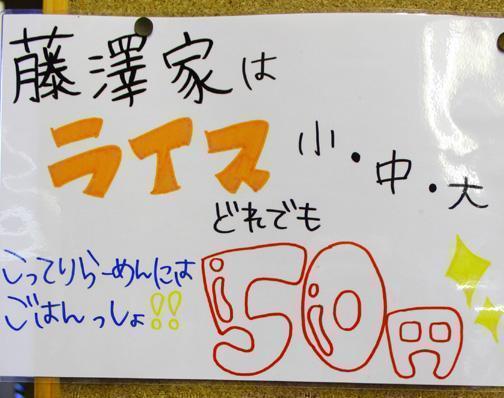 藤澤家は
ライス 小・中・大
どれでも
こってりらーめんには
ごはんっしょ!!
50円